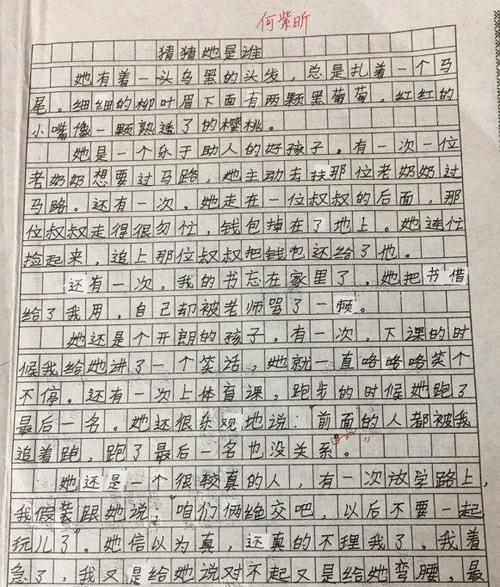 何紫昕
猜猜她是谁
她有着一头乌黑的头发，总是扎着一个马
尾。细细的柳叶眉下面有两颗黑葡萄，红红的
小嘴像一颗熟透了的樱桃。
她是一个乐于助人的好孩子。有一次一位
老奶奶想要过马路，她主动去扶那位老奶奶过
马路。还有一次。她走在一位叔叔的后面，那
位叔叔走得很匆忙，钱包掉在了地上。她连忙
捡起来，追上那位叔叔把钱包还给了他。
还有一次，我的书忘在家里了，她把书借
给了我用，自己却被老师骂了一顿。
她还是个开朗的孩子。有一次，下课的时
候我给她讲了一个笑话，她就一直咯咯咯笑个
不停。还有一次上体育课，跑步的时候她跑了
最后一名。她还很乐观地说："前面的人都被我
追着跑，跑了最后一名也没关系。
她还是一个很较真的人，有一次放学路上，
我假装跟她说："咱们俩绝交吧，以后不要一起
玩儿了"。她信以为真，还真的不理我了。我着
急了，我又是给她说对不起又是给她弯腰，最